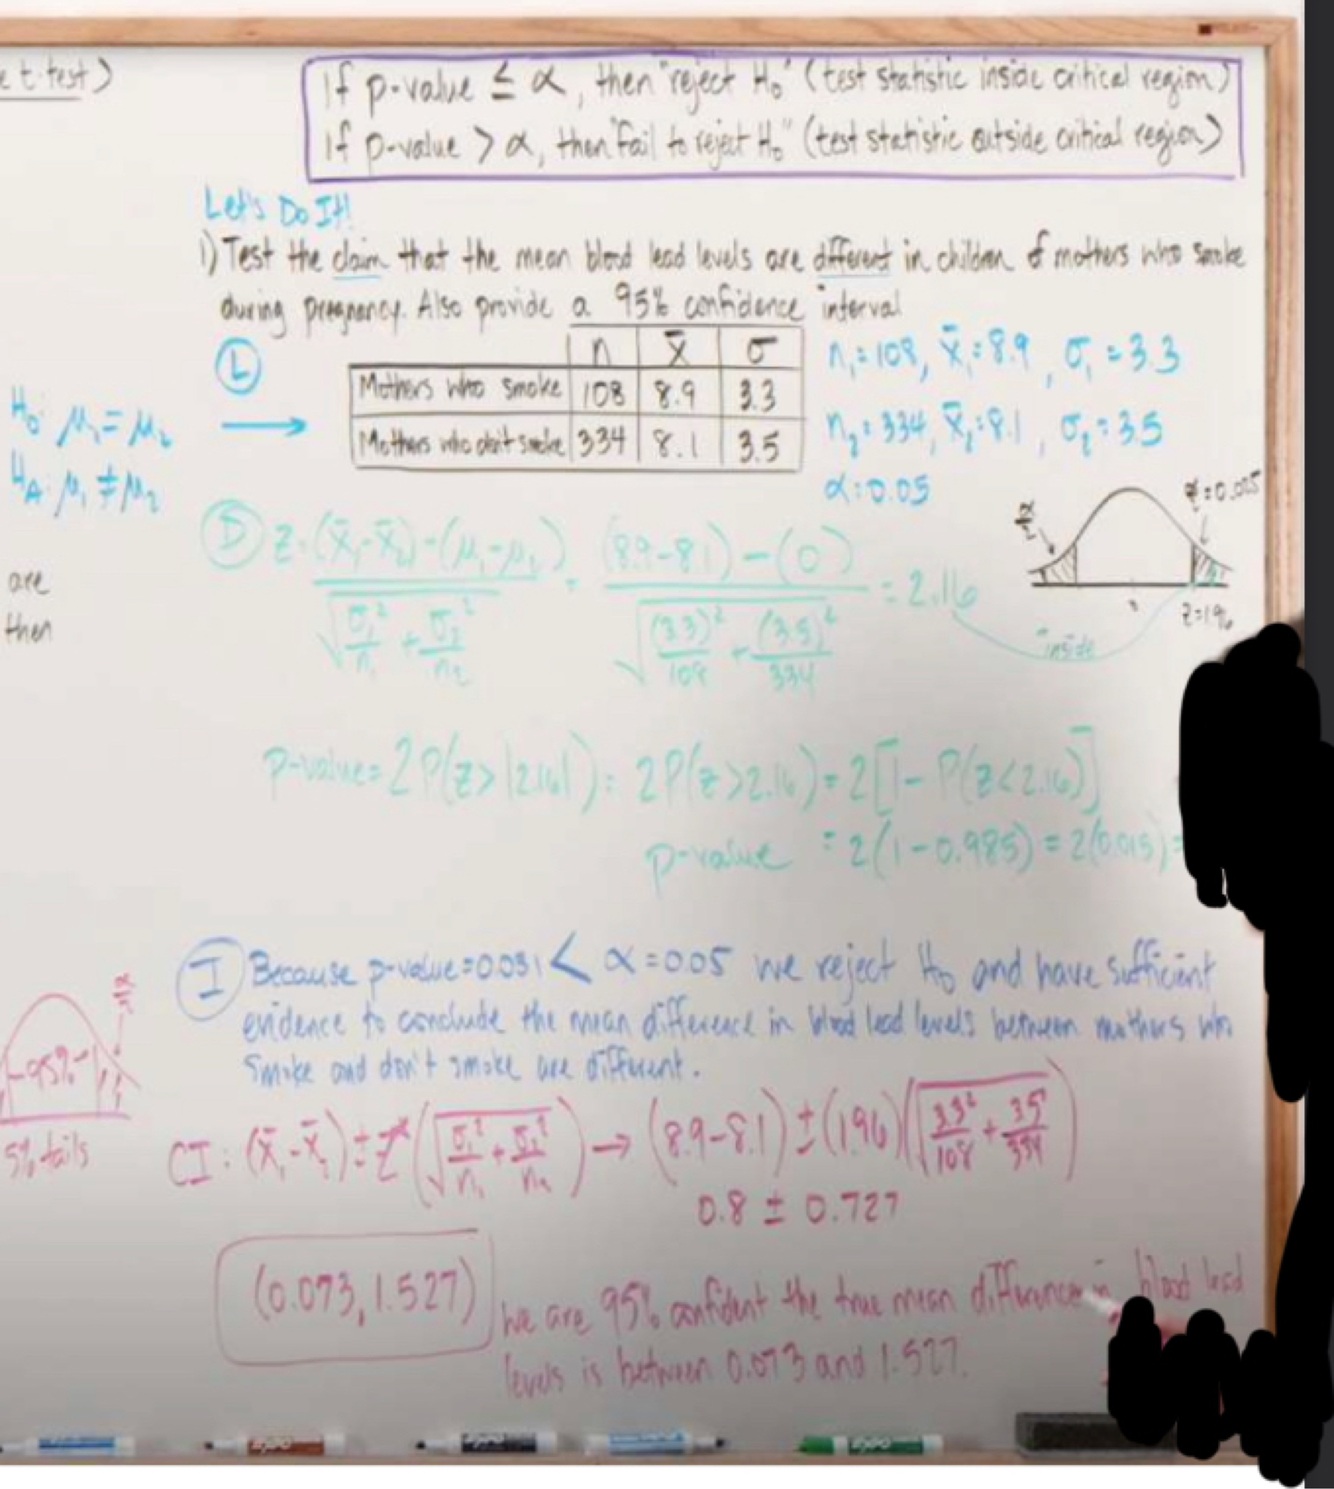 e t-test)
If p-value ≤ α, then "reject H₀" (test statistic inside critical region)
If p-value > α, then "fail to reject H₀" (test statistic outside critical region)
Let's Do It!
1) Test the claim that the mean blood lead levels are different in children of mothers who smoke
during pregnancy. Also provide a 95% confidence interval
L
n x̄ σ
Mothers who smoke 108 8.9 3.3
Mothers who don't smoke 334 8.1 3.5
n₁ = 108, x̄₁ = 8.9, σ₁ = 3.3
n₂ = 334, x̄₂ = 8.1, σ₂ = 3.5
α = 0.05
H₀: μ₁ = μ₂
H_A: μ₁ ≠ μ₂
α/2
α/2 = 0.025
z = 1.96
inside
D z = ((x̄₁ - x̄₂) - (μ₁ - μ₂)) / √(σ₁²/n₁ + σ₂²/n₂) = ((8.9 - 8.1) - (0)) / √((3.3)²/108 + (3.5)²/334) = 2.16
are
then
p-value = 2P(z > |2.16|) = 2P(z > 2.16) = 2[1 - P(z < 2.16)]
p-value = 2(1 - 0.985) = 2(0.015) =
I Because p-value = 0.031 < α = 0.05 we reject H₀ and have sufficient
evidence to conclude the mean difference in blood lead levels between mothers who
smoke and don't smoke are different.
α/2
95%
5% tails
CI: (x̄₁ - x̄₂) ± z* (√(σ₁²/n₁ + σ₂²/n₂)) → (8.9 - 8.1) ± (1.96)(√(3.3²/108 + 3.5²/334))
0.8 ± 0.727
(0.073, 1.527)
We are 95% confident the true mean difference in blood lead
levels is between 0.073 and 1.527.
EXPO
EXPO
EXPO
EXPO